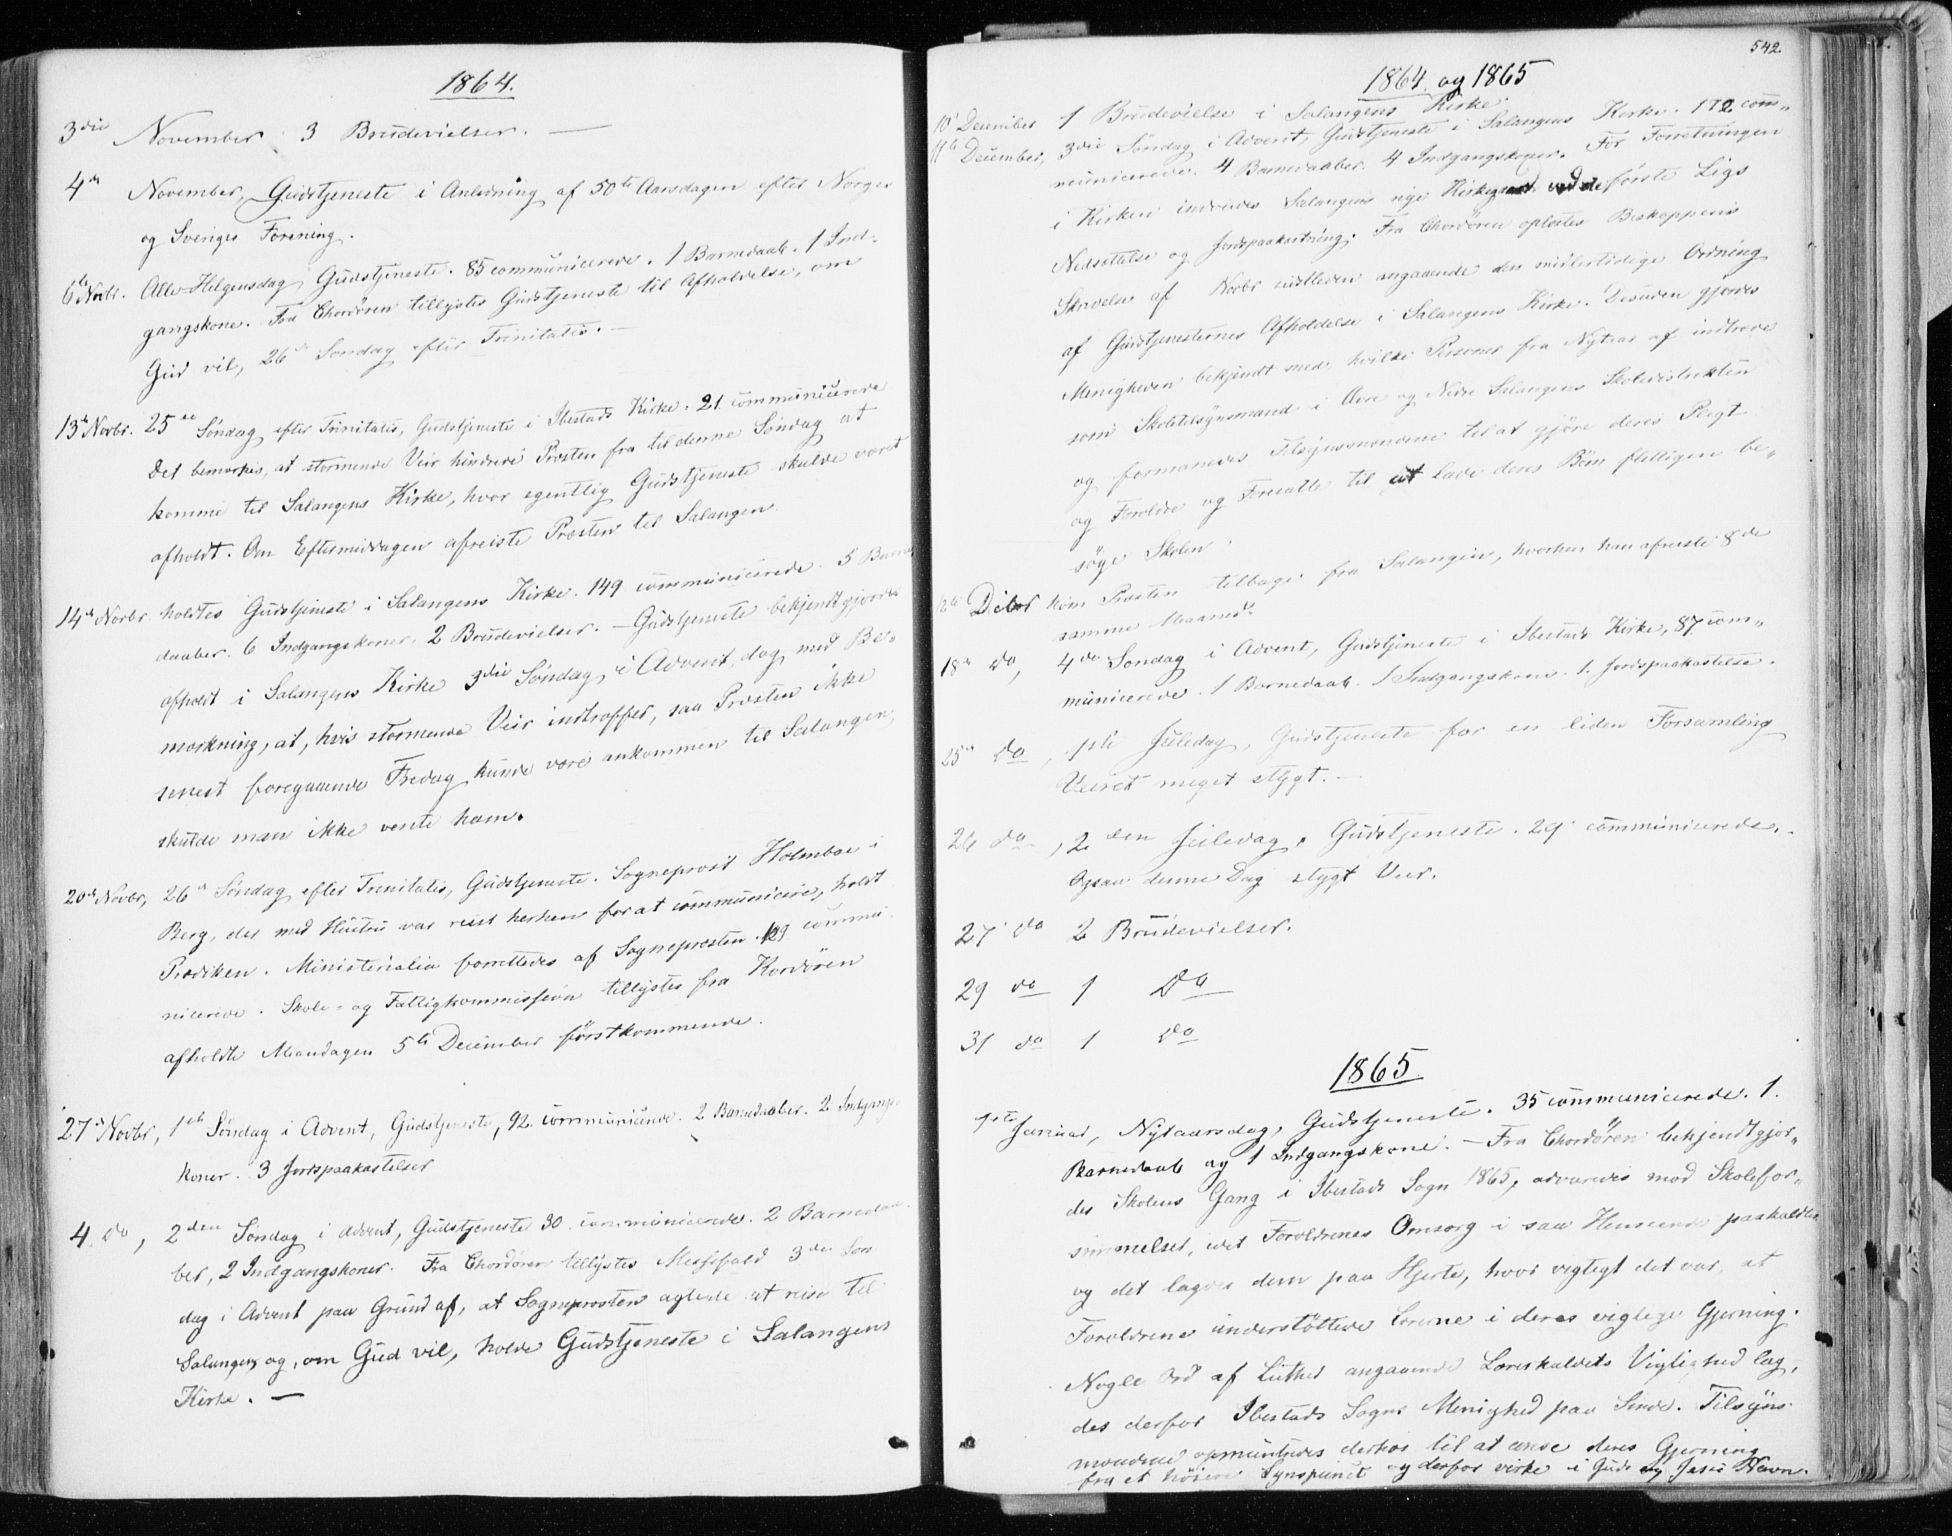 1864.
3die November 3 Brudevielser. —
4de November, Gudstjeneste i Anledning af 50de Aarsdagen efter Norges
og Sveriges Forening.
6te Novbr. Alle-Helgensdag Gudstjeneste. 85 communicerede. 1 Barnedaab. 1 Ind-
gangskone. Fra Chordören tillystes Gudstjeneste til Afholdelse, om
Gud vil, 26de Søndag efter Trinitatis. —
13de Novbr. 25de Søndag efter Trinitatis, Gudstjeneste i Ibestads Kirke. 21 communicerede
Det bemærkes, at stormende Veir hindrede Præsten fra til denne Søndag at
komme til Salangens Kirke, hvor egentlig Gudstjeneste skulde været
afholdt. Om Eftermiddagen afreiste Præsten til Salangen.
14de Novbr holdtes Gudstjeneste i Salangens Kirke. 149 communicerede. 5 Barne
daaber. 6 Indgangskoner. 2 Brudevielser. — Gudstjeneste bekjendtgjordes
afholdt i Salangens Kirke 3die Søndag i Advent, dog med Be-
mærkning, at, hvis stormende Veir indtræffer, saa Præsten ikke
senest foregaaende Fredag kunde være ankommen til Salangen,
skulde man ikke vente ham.
20de Novbr, 26de Søndag efter Trinitatis, Gudstjeneste. Sogneprest Holmboe i
Berg, der med Hustru var reist herhen for at communicere, holdt
Prædiken. Ministerialia forrettedes af Sognepræsten. 129 commu-
nicerede. Skole- og Fattigkommission tillystes fra Kordören
afholdt Mandagen 5te December førstkommende.
27de Novbr, 1ste Søndag i Advent, Gudstjeneste, 92 communicerede. 2 Barnedaaber. 2 Indgangs-
koner. 3 Jordspaakastelser
4. Do, 2den Søndag i Advent, Gudstjeneste 30 communicerede. 2 Barnedaa-
ber, 2 Indgangskoner. Fra Chordören tillystes Messefald 3die Søn-
dag i Advent paa Grund af, at Sognepræsten agtede at reise til
Salangen, og, om Gud vil, holde Gudstjeneste i Salangens
Kirke. —
542
1864 og 1865
10de December 1 Brudevielse i Salangens Kirke.
11te December, 3die Søndag i Advent, Gudstjeneste i Salangens Kirke. 172 com-
municerede. 4 Barnedaaber. 4 Indgangskoner. Før Forretningen
i Kirken indviedes Salangens nye Kirkegaard ved første Ligs
Nedsættelse og Jordspaakastning. Fra Chordören oplæstes Biskoppens
Skrivelse af Novbr sidstleden angaaende den midlertidige Ordning
af Gudstjenesternes Afholdelse i Salangens Kirke. Desuden gjordes
Menigheden bekjendt med, hvilke Personer fra Nytaar af indtræde
som Skoletilsynsmænd i Øvre og Nedre Salangens Skoledistrikter
og formanedes Tilsynsmændene til at gjöre deres Pligt
og Forældre og Foresatte til at lade deres Börn flittigen be-
söge Skolen.
12te Decbr kom Præsten tilbage fra Salangen, hvorhen han afreiste 8de
samme Maaned.
18de do, 4de Søndag i Advent, Gudstjeneste i Ibestads Kirke, 87 com-
municerede. 1 Barnedaab. 1 Indgangskone. 1. Jordspaakastelse.
25de do, 1ste Juledag, Gudstjeneste for en liden Forsamling
Veiret meget stygt. —
26 do, 2den Juledag. Gudstjeneste. 29 communicerede.
Ogsaa denne Dag stygt Veir.
27 do 2 Brudevielser.
29 do 1 Do
31 do 1 do
1865.
1ste Januar, Nytaarsdag, Gudstjeneste. 35 communicerede. 1.
Barnedaab og 1 Indgangskone. — Fra Chordören bekjendtgjor-
des Skolens Gang i Ibestads Sogn 1865, advaredes mod Skolefor-
sømmelser, idet Forældrenes Omsorg i saa Henseende paakaldtes
og det lagdes dem paa Hjerte, hvor vigtigt det var, at
Forældrene understöttede Lærerne i deres vigtige Gjerning.
Nogle Ord af Luther angaaende Lærerkaldets Vigtighed lag-
des derfor Ibestads Sogns Menighed paa Sinde. Tilsyns-
mændene opmuntredes derhos til at ansee deres Gjerning
fra et höiere Synspunct og derfor virke i Guds og Jesu Navn.